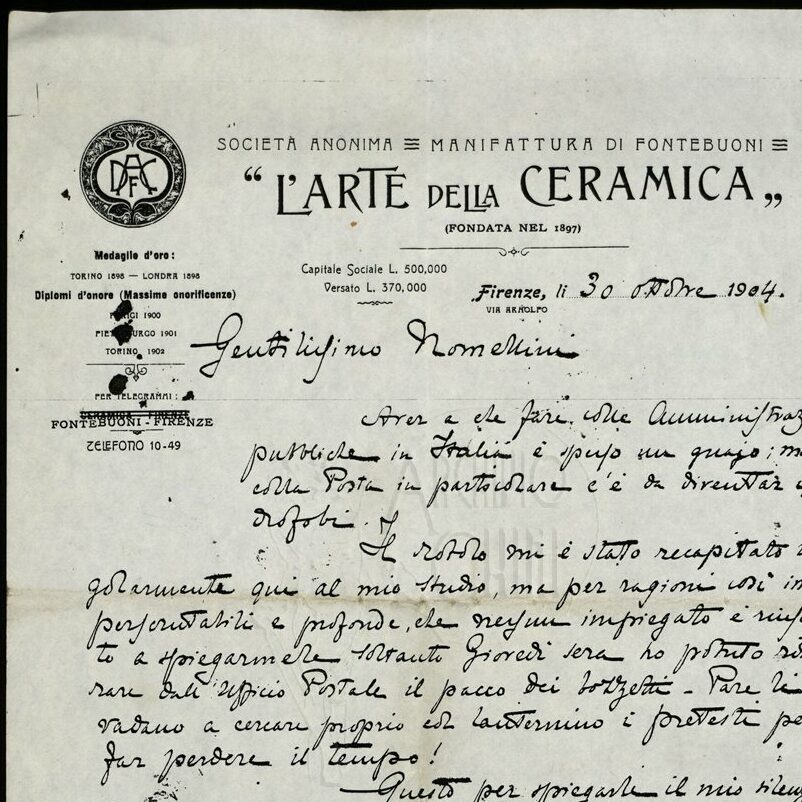 SOCIETÀ ANONIMA ≡ MANIFATTURA DI FONTEBUONI ≡
“L'ARTE DELLA CERAMICA„
(FONDATA NEL 1897)
Medaglie d'oro:
TORINO 1898 — LONDRA 1898
Diplomi d'onore (Massime onorificenze)
1900
1901
TORINO 1902
PER TELEGRAMMI:
CERAMICA - FIRENZE
FONTEBUONI - FIRENZE
TELEFONO 10-49
Capitale Sociale L. 500,000
Versato L. 370,000
Firenze, li 30 ottobre 1904.
VIA ARNOLFO
Gentilissimo Nomellini
Aver a che fare colle Amministraz
pubbliche in Italia è spesso un guajo; ma
colla Posta in particolare c'è da diventar
drofobi.
Il rotolo mi è stato recapitato
golarmente qui al mio studio, ma per ragioni così im
perscrutabili e profonde, che nessun impiegato è riusci
to a spiegarmele soltanto Giovedì sera ho potuto
rare dall'Ufficio Postale il pacco dei bozzetti - Pare
vadano a cercare proprio col lanternino i pretesti pe
far perdere il tempo!
Questo per spiegarle il mio silen
ARCHIVIO
CHINI